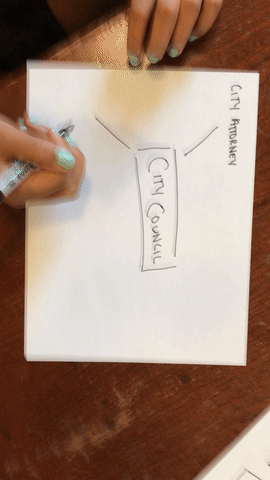 CITY ATTORNEY
CITY COUNCIL